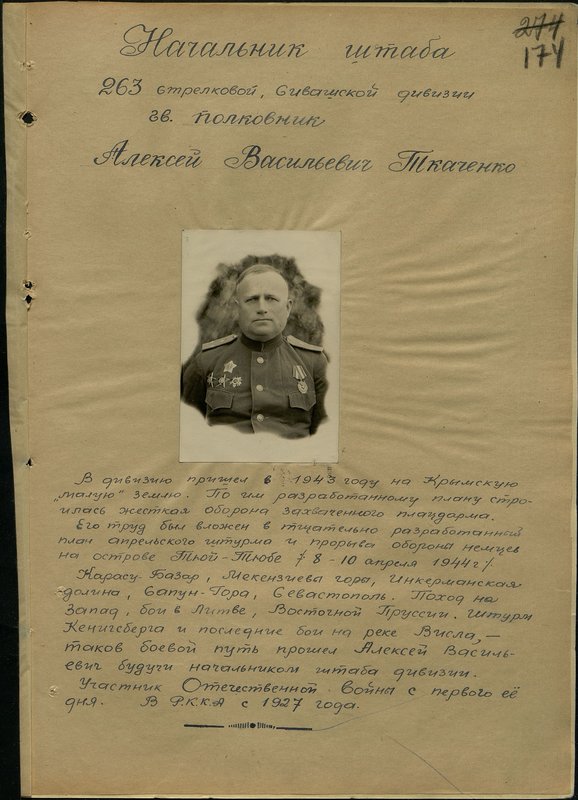 274
174
Начальник штаба
263 стрелковой, Сивашской дивизии
гв. полковник
Алексей Васильевич Ткаченко
В дивизию пришел в 1943 году на Крымскую
„малую" землю. По им разработанному плану стро-
илась жесткая оборона захваченного плацдарма.
Его труд был вложен в тщательно разработанный
план апрельского штурма и прорыва оборона немцев
на острове Тюй-Тюбе / 8-10 апреля 1944 г /.
Карасу-Базар, Мекензиева гора, Инкерманская
долина, Сапун-Гора, Севастополь. Поход на
Запад, бои в Литве, Восточной Пруссии. Штурм
Кенигсберга и последние бои на реке Висла, —
таков боевой путь прошел Алексей Василь-
евич будучи начальником штаба дивизии.
Участник Отечественной Войны с первого её
дня. В Р.К.К.А с 1927 года.